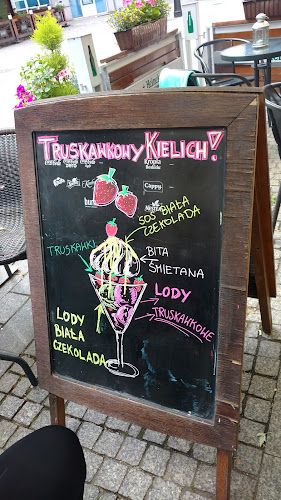 TRUSKAWKOWY KIELICH!
Kropla
Beskidu
Cappy
SOS BIAŁA
CZEKOLADA
TRUSKAWKI
BITA
ŚMIETANA
LODY
TRUSKAWKOWE
LODY
BIAŁA
CZEKOLADA